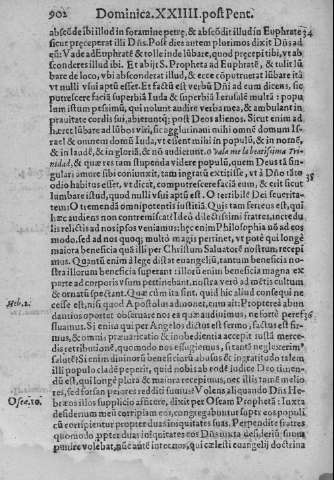 902 Dominica. XXIIII. post Pent.
abscõde ibi illud in foramine petrę, & abscõdit illud in Euphrate 34
sicut pręceperat illi Dñs. Post dies autem plurimos dixit Dñs ad
eũ: Vade ad Euphratẽ & tolle inde lũbare, quod pręcepi tibi, vt ab
sconderes illud ibi. Et abijt S. Propheta ad Euphratẽ, & tulit lũ
bare de loco, vbi absconderat illud, & ecce cõputruerat lũbare ita
vt nulli vsui aptũ esset. Et factũ est verbũ Dñi ad eum dicens, sic
putrescere faciã superbiã Iuda & superbiã Ierusalẽ multã: popu
lum istum pessimũ, qui nolunt audire verba mea, & ambulant in
prauitate cordis sui, abieruntq; post Deos alienos. Sicut enim ad
hæret lũbare ad lũbos viri, sic agglutinaui mihi omnẽ domum Is-
rael & omnem domũ Iuda, vt essent mihi in populũ, & in nomẽ,
& in laudẽ, & in gloriã, & nõ audierunt. 
 & quæ res tam stupenda videre populũ, quem Deus tã sin-
gulari amore sibi coniunxit, tam ingratũ extitisse, vt à Dño tãto
odio habitus esset, vt dicat, computrescere faciã eum, & erit sicut 38
lumbare istud, quod nulli vsui aptũ est. O terribilẽ Dei seuerita-
tem: O tremendã omnipotentis iustitiã. Quis tam ferreus est, qui
hæc audiens non contremiscat? Ideò dilectissimi fratres, incredu
lis relictis ad nos ipsos veniamus: hęc enim Philosophia nõ ad eos
modo, sed ad nos quoq; multò magis pertinet, vt pote qui longè
maiora beneficia quã illi per Christum Saluatorẽ nostrum recepi
mus. Quantũ enim à lege distat euangeliũ, tantum beneficia no-
stra illorum beneficia superant: illorũ enim beneficia magna ex
parte ad corporis vsum pertinebant, nostra verò ad mẽtis cultum
& ornatũ spectant. Quæ cùm ita sint, quid hic aliud consequi ne
Heb. 2. cesse est, nisi quod Apostolus admonet, cum ait: Propterea abun
dantius oportet obseruare nos ea quæ audiuimus, ne fortè peref- 36
fluamus. Si enim qui per Angelos dictus est sermo, factus est fir-
mus, & omnis præuaricatio & inobedientia accepit iustã merce-
dis retributionẽ, quomodo nos effugiemus, si tantã neglexerim⁹
salutẽ? Si enim diuinorũ beneficiorũ abusus & ingratitudo talem
illi populo cladẽ peperit, quid nobis ab eodẽ iudice Deo timen-
dũ est, qui longè plura & maiora recepimus, nec illis tamẽ melio
res, sed forsan peiores redditi sumus? Volens aliquando Dñs He-
Osee. 10. bræos illos supplicio afficere, dixit per Oseam Prophetã: Iuxta
desiderium meũ corripiam eos, congregabuntur super eos populi
cũ corripientur propter duas iniquitates suas. Perpendite fratres
quomodo ꝓpter duas iniquitates eos Dñs iuxta desideriũ suum
punire volebat, nũc autẽ inter nos, qui cælesti euangelij doctrina